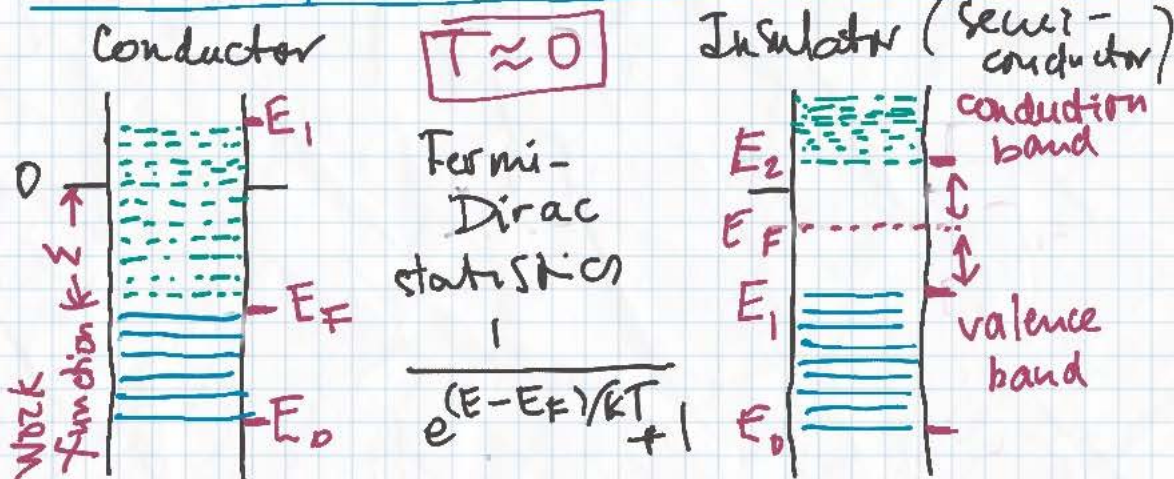 Conductor
T ≈ 0
Insulator (semi-
conductor)
E₁
0
Work
function
E_F
E₀
Fermi-
Dirac
statistics
1
e^{(E-E_F)/kT} + 1
conduction
band
E₂
E_F
E₁
valence
band
E₀